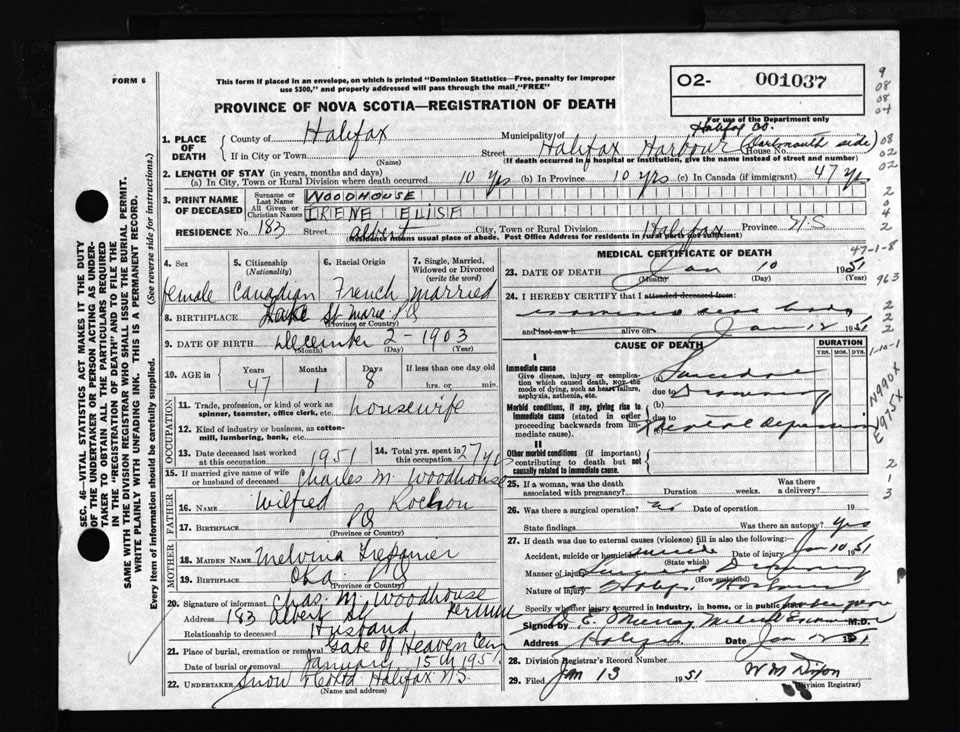 FORM 6
This form if placed in an envelope, on which is printed "Dominion Statistics—Free, penalty for improper
use $300," and properly addressed will pass through the mail "FREE"
PROVINCE OF NOVA SCOTIA—REGISTRATION OF DEATH
O2- 001037
For use of the Department only
SEC. 46—VITAL STATISTICS ACT MAKES IT THE DUTY
OF THE UNDERTAKER OR PERSON ACTING AS UNDER-
TAKER TO OBTAIN ALL THE PARTICULARS REQUIRED
IN THE "REGISTRATION OF DEATH" AND TO FILE THE
SAME WITH THE DIVISION REGISTRAR WHO SHALL ISSUE THE BURIAL PERMIT.
WRITE PLAINLY WITH UNFADING INK. THIS IS A PERMANENT RECORD.
Every item of information should be carefully supplied. (See reverse side for instructions.)
1. PLACE OF DEATH
County of Halifax Municipality of Halifax Co.
If in City or Town (Name) Street Halifax Harbour (Dartmouth side) House No.
(If death occurred in hospital or institution, give the name instead of street and number)
2. LENGTH OF STAY (in years, months and days)
(a) In City, Town or Rural Division where death occurred 10 yrs (b) In Province 10 yrs (c) In Canada (if immigrant) 47 yrs
3. PRINT NAME OF DECEASED
Surname or Last Name WOODHOUSE
All Given or Christian Names IRENE ELISE
RESIDENCE No. 183 Street Albert City, Town or Rural Division Halifax Province N.S
(Residence means usual place of abode. Post Office Address for residents in rural parts not sufficient)
4. Sex 5. Citizenship (Nationality) 6. Racial Origin 7. Single, Married, Widowed or Divorced (write the word)
female Canadian French married
8. BIRTHPLACE Lake St. Marie PQ
(Province or Country)
9. DATE OF BIRTH December 2 - 1903
(Month) (Day) (Year)
10. AGE in Years Months Days If less than one day old
47 1 8 hrs. or min.
OCCUPATION
11. Trade, profession, or kind of work as spinner, teamster, office clerk, etc. housewife
12. Kind of industry or business, as cotton-mill, lumbering, bank, etc.
13. Date deceased last worked at this occupation 1951 14. Total yrs. spent in this occupation 27 yrs
15. If married give name of wife or husband of deceased Charles M. Woodhouse
FATHER
16. Name Wilfred
17. Birthplace PQ
(Province or Country)
MOTHER
18. Maiden Name Melvina
19. Birthplace Oka PQ
(Province or Country)
20. Signature of informant Chas. M. Woodhouse
Address 183 Albert St
Relationship to deceased Husband
21. Place of burial, cremation or removal Gate of Heaven Cem
Date of burial or removal January 15th 1951
22. Undertaker Snow & Co Ltd Halifax N.S.
(Name and address)
MEDICAL CERTIFICATE OF DEATH
23. DATE OF DEATH Jan 10 1951
(Month) (Day) (Year)
24. I HEREBY CERTIFY that I attended deceased from:
examined dead body
and last saw h alive on Jan 12 1951
CAUSE OF DEATH DURATION
YRS. MOS. DYS.
I
Immediate cause
Give disease, injury or complication which caused death, NOT the mode of dying, such as heart failure, asphyxia, asthenia, etc.
(a) Suicidal
due to Drowning
Morbid conditions, if any, giving rise to immediate cause (stated in order proceeding backwards from immediate cause).
(b)
due to
(c) Mental Depression
II
Other morbid conditions (if important) contributing to death but not causally related to immediate cause.
25. If a woman, was the death associated with pregnancy? Duration weeks. Was there a delivery?
26. Was there a surgical operation? no Date of operation 19
State findings Was there an autopsy? Yes
27. If death was due to external causes (violence) fill in also the following:—
Accident, suicide or homicide? suicide Date of injury Jan 10 1951
(State which)
Manner of injury Suicidal Drowning
(How sustained)
Nature of injury
Specify whether injury occurred in industry, in home, or in public place
Signed by E. Murray Medical Examiner M.D.
Address Halifax Date Jan 12 1951
28. Division Registrar's Record Number
29. Filed Jan 13 1951 W M Dixon
(Division Registrar)
9
08
08
04
08
02
02
2
0
4
2
47-1-8
963
2
2
2
1-10-1
N990X
E975X
2
1
3